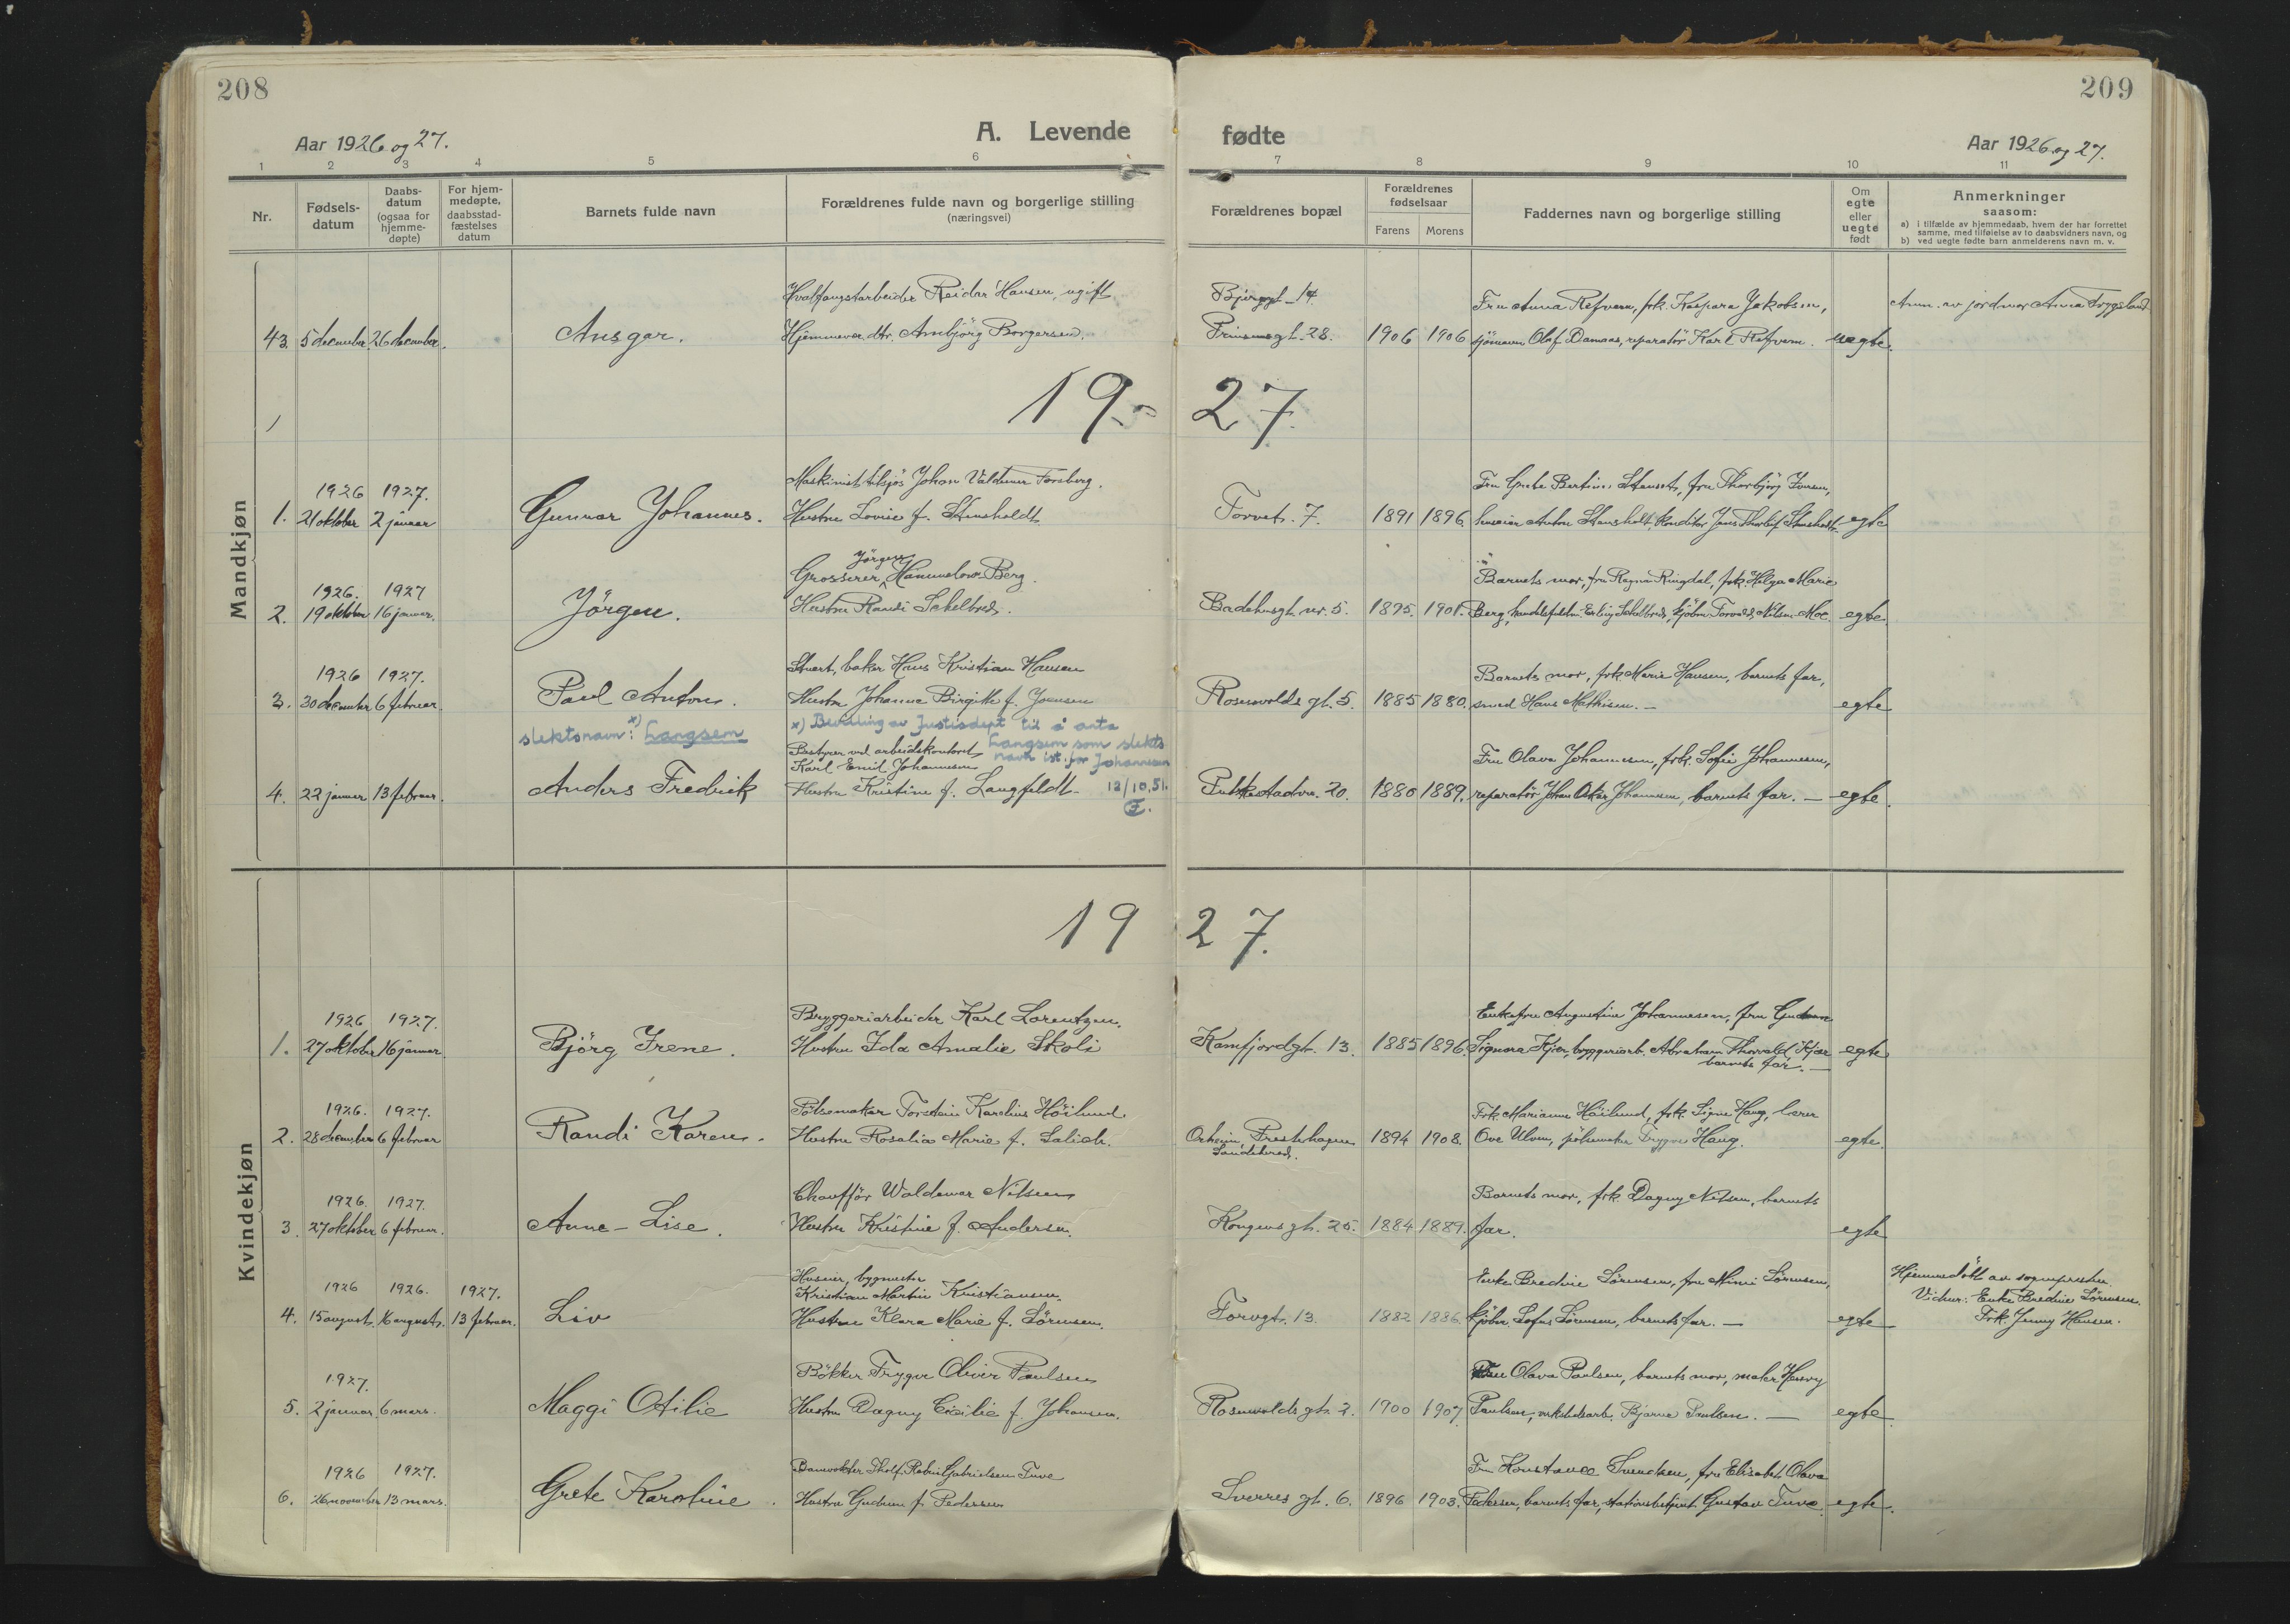 208
209
Aar 1926 og 27.
A. Levende
fødte
Aar 1926 og 27.
1 2 3 4 5 6 7 8 9 10 11
Nr.
Fødsels-
datum
Daabs-
datum
(ogsaa for
hjemme-
døpte)
For hjem-
medøpte,
daabsstad-
fæstelses
datum
Barnets fulde navn
Forældrenes fulde navn og borgerlige stilling
(næringsvei)
Forældrenes bopæl
Forældrenes
fødselsaar
Farens Morens
Faddernes navn og borgerlige stilling
Om
egte
eller
uegte
født
Anmerkninger
saasom:
a) i tilfælde av hjemmedaab, hvem der har forrettet
samme, med tilføielse av to daabsvidners navn, og
b) ved uegte fødte barn anmelderens navn m. v.
Mandkjøn
Hvalfangstarbeider Reidar Hansen, ugift
Bjerggt. 14.
Fru Anna Refvem, frk. Kaspara Jakobsen,
Anm. av jordmor Anna Tryggeland
43. 5 december 26 december. Ansgar. Hjemmev. dtr. Ambjörg Borgersen. Prinsensgt. 28. 1906 1906 sjömann Olaf Damaas, reparatör Karl Refvem. uegte.
19 27.
1926 1927.
Maskinist tilsjös Johan Valdemar Forsberg.
1. 21 oktober 2 januar Gunnar Johannes. Hustru Lovise f. Stensholdt. Torvet. 7. 1891 1896. huseier Anton Stensholt, konditor Jens Thorleif Stensholt. egte
1926. 1927
Jörgen
Grosserer Hammelow-Berg.
Barnets mor, fru Ragna Ringdal, frk. Helga Marie
2. 19 oktober 16 januar. Jörgen. Hustru Randi Schelbred. Badehusgt. nr. 5. 1895. 1901. Berg, handelsfuldm. Erling Schelbred, kjöbm. Torvald Nilsen Moe. egte.
1926 1927.
Stuert, baker Hans Kristian Hansen
Barnets mor, frk. Marie Hansen, barnets far,
3. 30 december 6 februar. Paul Anton. Hustru Johanne Birgitte f. Joensen Rosenvolds gt. 5. 1885 1880. smed Hans Mathisen. — egte
slektsnavn: x) Langsem
x) Bevilling av Justisdept til å anta
Langsem som slekts
navn ist. for Johannesen
12/10.51.
Bestyrer ved arbeidskontoret
Karl Emil Johannesen
Fru Olava Johannesen, frk. Sofie Johannesen,
4. 22 januar 13 februar. Anders Fredrik Hustru Kristine f. Langfeldt. 20. 1880 1889. reparatör Johan Oskar Johannesen, barnets far. — egte.
Kvindekjøn
19 27.
1926 1927.
Bryggeriarbeider Karl Lorentzen.
Enkefru Augustine Johannesen, fru Gudrun
1. 27 oktober 16 januar Björg Irene. Hustru Ida Amalie Skoli Kamfjordgt. 13. 1885 1896 Signora Kjær, bryggeriarb. Abraham Thorvald Kjær egte
barnets far. —
1926. 1927.
Pölsemaker Torstein Karelius Höilund
Frk. Marianne Höilund, frk. Signe Haug, lærer
2. 28 december 6 februar Randi Karen. Hustru Rosalia Marie f. Salich. Prestehagen 1894 1908. Ove Ulven, pölsemaker Trygve Haug. egte.
Sandeherred.
1926. 1927.
Chaufför Waldemar Nilsen
Barnets mor, frk. Dagny Nilsen, barnets
3. 27 oktober 6 februar. Anne-Lise. Hustru Kristine f. Andersen. Kongensgt. 25. 1884 1889. far. egte
1926 1926. 1927.
Huseier, bygmester
Kristian Martin Kristiansen.
Enke Bredine Sörensen, fru Mimi Sörensen,
Hjemmedöbt av sognepresten.
Vidner: Enke Bredine Sörensen.
4. 15 august. 16 august. 13 februar. Liv Hustru Klara Marie f. Sörensen. Torvgt. 13. 1882 1886. kjöbm. Sofus Sörensen, barnets far. — egte
Frk. Jenny Hansen.
1927.
Bökker Trygve Oliver Paulsen
Fru Olava Paulsen, barnets mor, maler Henry
5. 2 januar. 6 mars. Maggi Otilie Hustru Dagny Cecilie f. Johansen. Rosenvolds gt. 2. 1900 1907 Paulsen, verkstedsarb. Bjarne Paulsen. — egte.
1926 1927.
Banevokter Gabrielsen Tuve
Fru Konstance Svendsen, fru Elisabet Olava
6. 26 november 13 mars. Grete Karoline. Hustru Gudrun f. Pedersen Sverres gt. 6. 1896 1903. Pedersen, barnets far, stationsbetjent Gustav Tuve. egte.